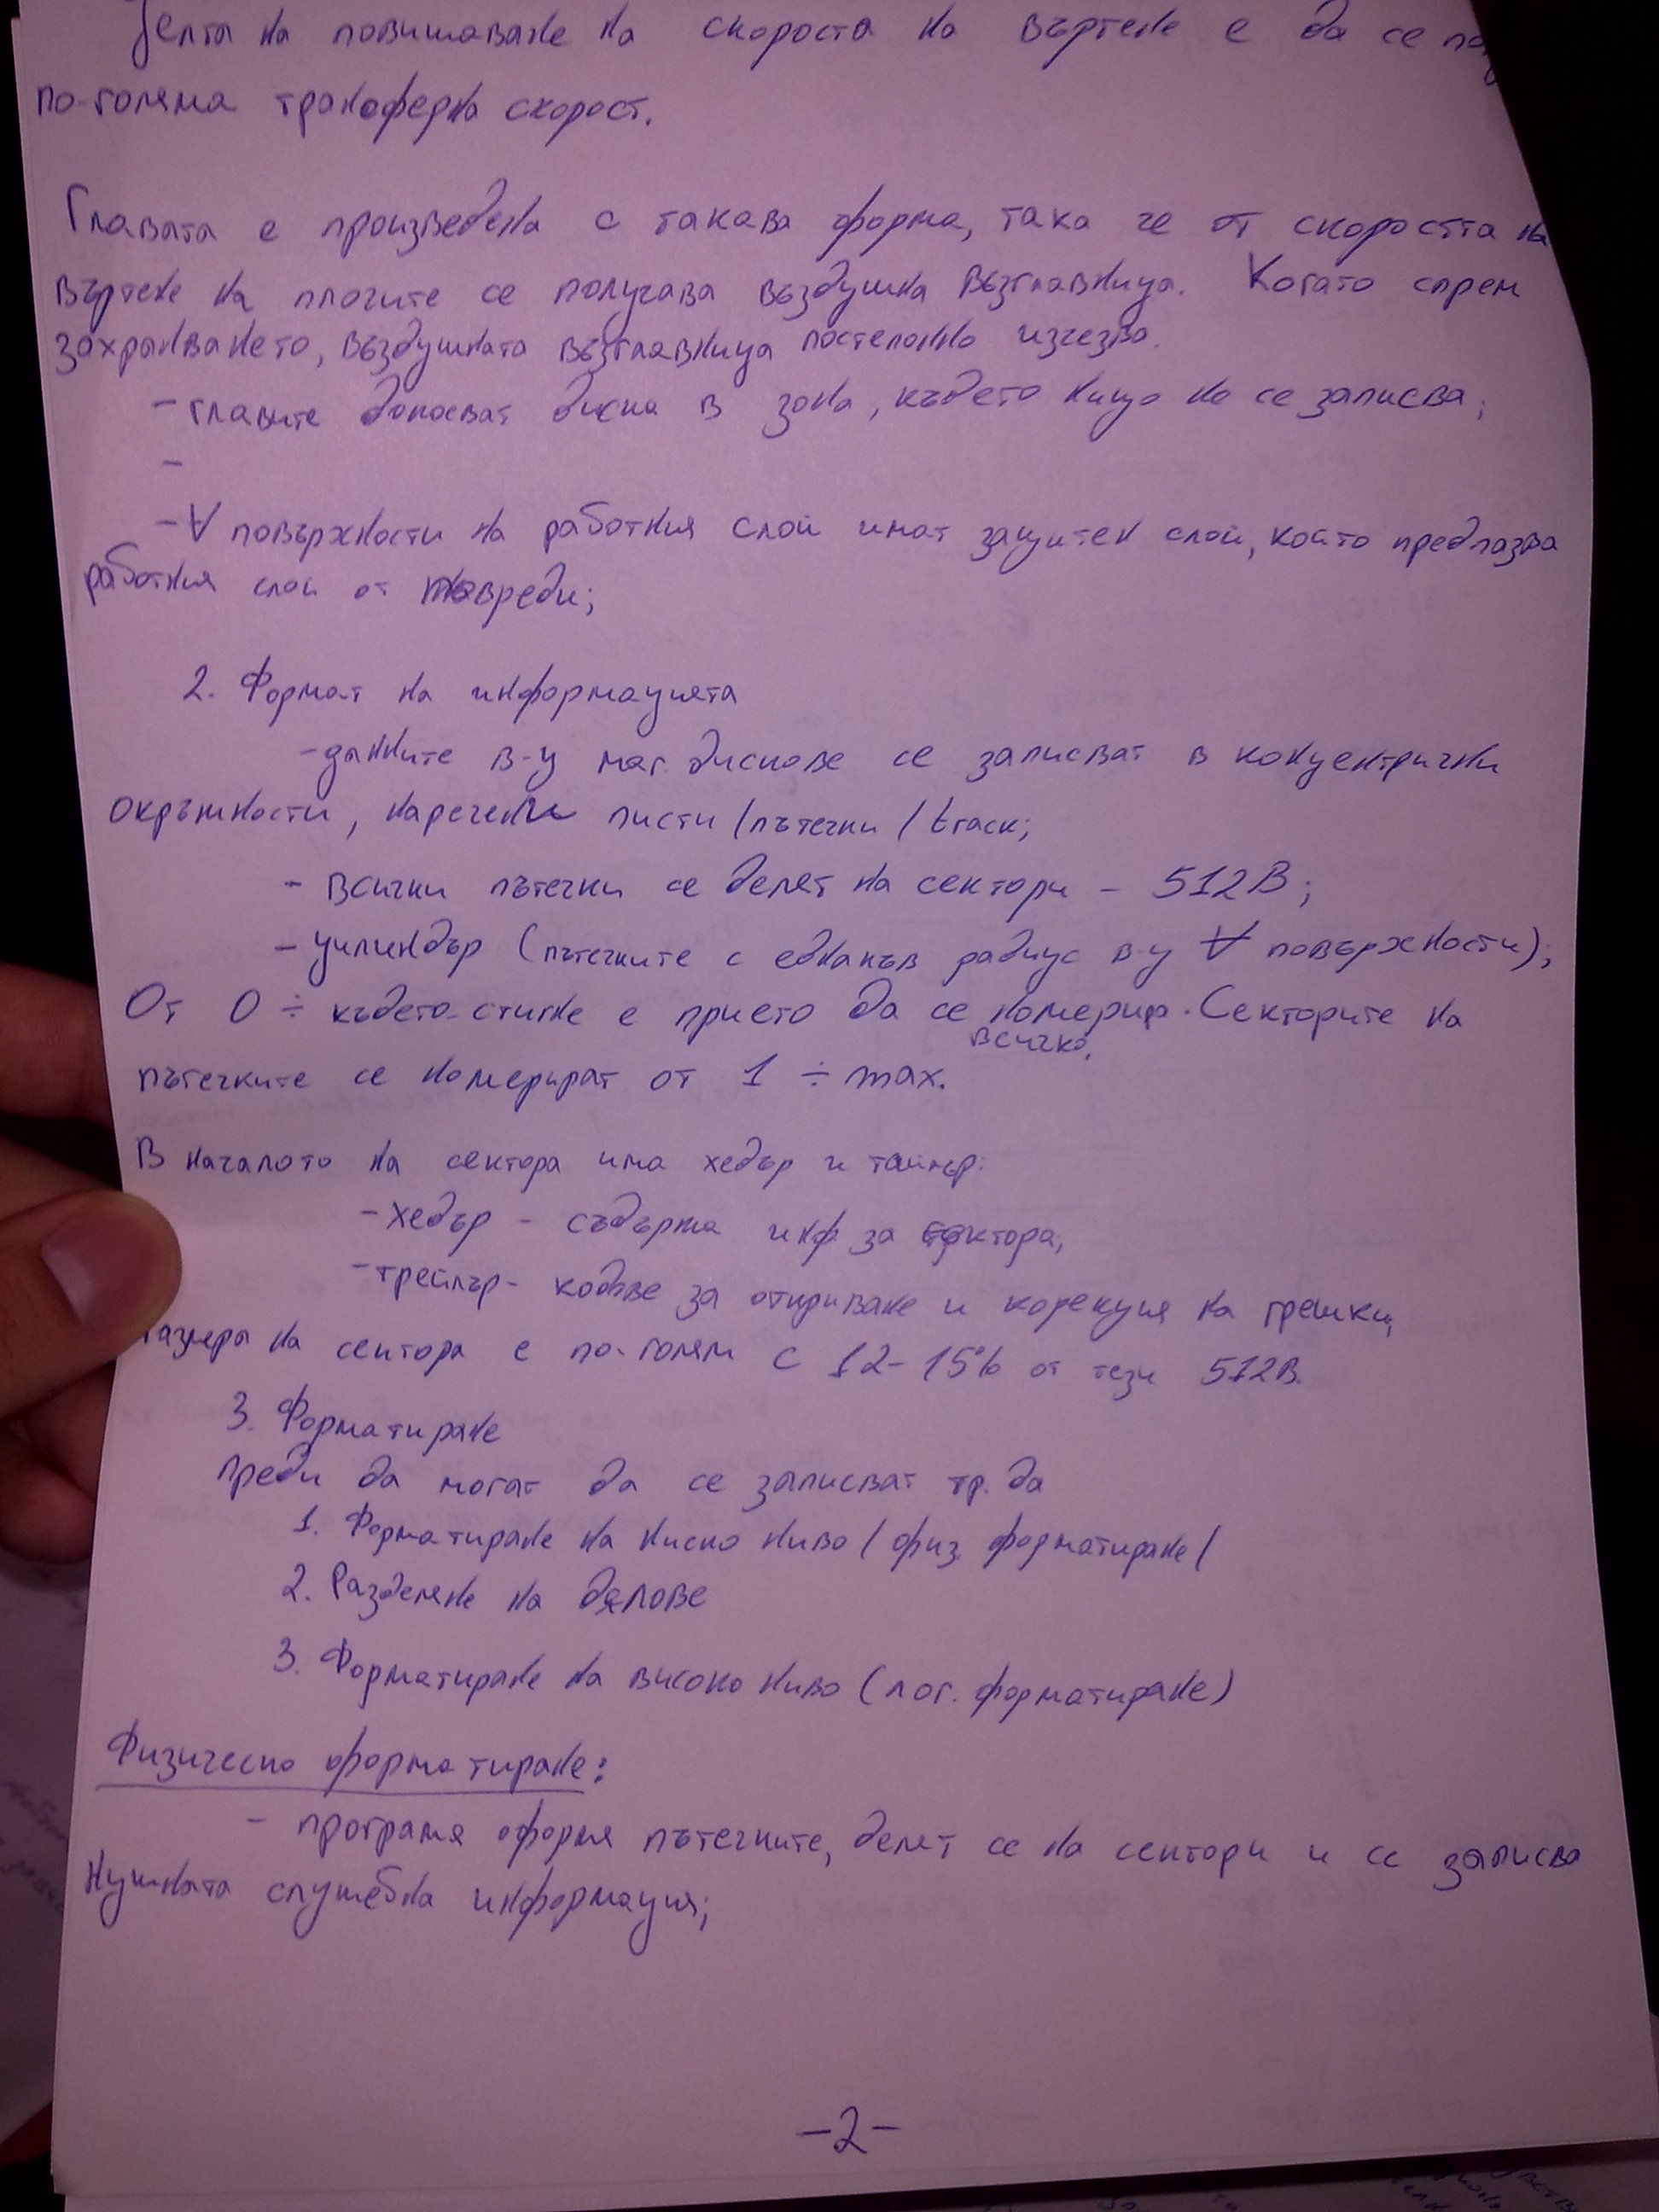 Целта на повишаване на скороста на въртене е да се
по-голяма трансферна скорост.
Главата е произведена с такава форма, така че от скоростта на
въртене на плочите се получава въздушна възглавница. Когато спрем
захранването, въздушната възглавница постепенно изчезва.
- главите докосват диска в зона, където нищо не се записва;
-
- ∀ повърхности на работния слой имат защитен слой, който предпазва
работния слой от повреди;
2. Формат на информацията
- данните в-у маг. дискове се записват в концентрични
окръжности, наречени писти /пътечки / track;
- всички пътечки се делят на сектори - 512B;
- цилиндър (пътечките с еднакъв радиус в-у ∀ повърхности);
От 0 ÷ където стигне е прието да се номерира. Секторите на
всичко,
пътечките се номерират от 1 ÷ max.
В началото на сектора има хедър и
- хедър - съдържа инф за сектора;
- трейлър - кодове за откриване и корекция на грешки,
Размера на сектора е по-голям с 12-15% от тези 512B.
3. Форматиране
Преди да могат да се записват тр. да
1. Форматиране на ниско ниво / физ. форматиране /
2. Разделяне на дялове
3. Форматиране на високо ниво (лог. форматиране)
Физическо форматиране:
- програмя оформя пътечките, делят се на сектори и се записва
нужната служебна информация;
-2-